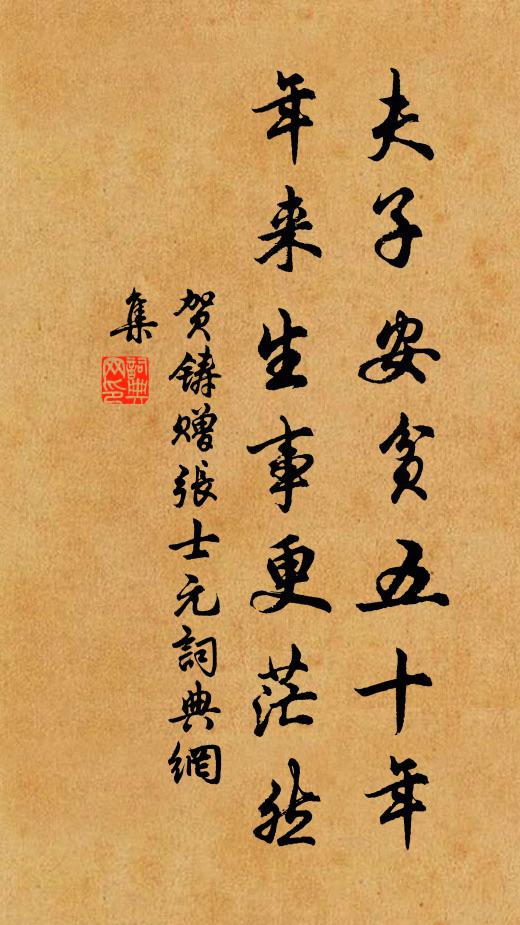 夫子安贫五十年
年来生事更茫然
贺鑄赠張士元詞典網
集
詞典
网印